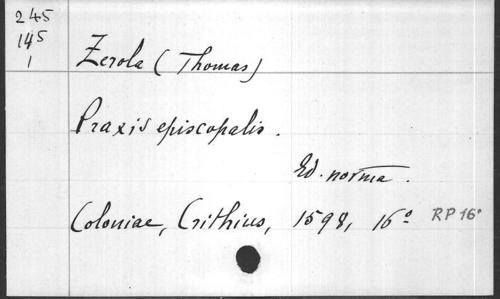 245
145
1
Zerola (Thomas)
Praxis episcopalis.
Ed. norma.
Coloniae, Crithius, 1598, 16° RP 16°